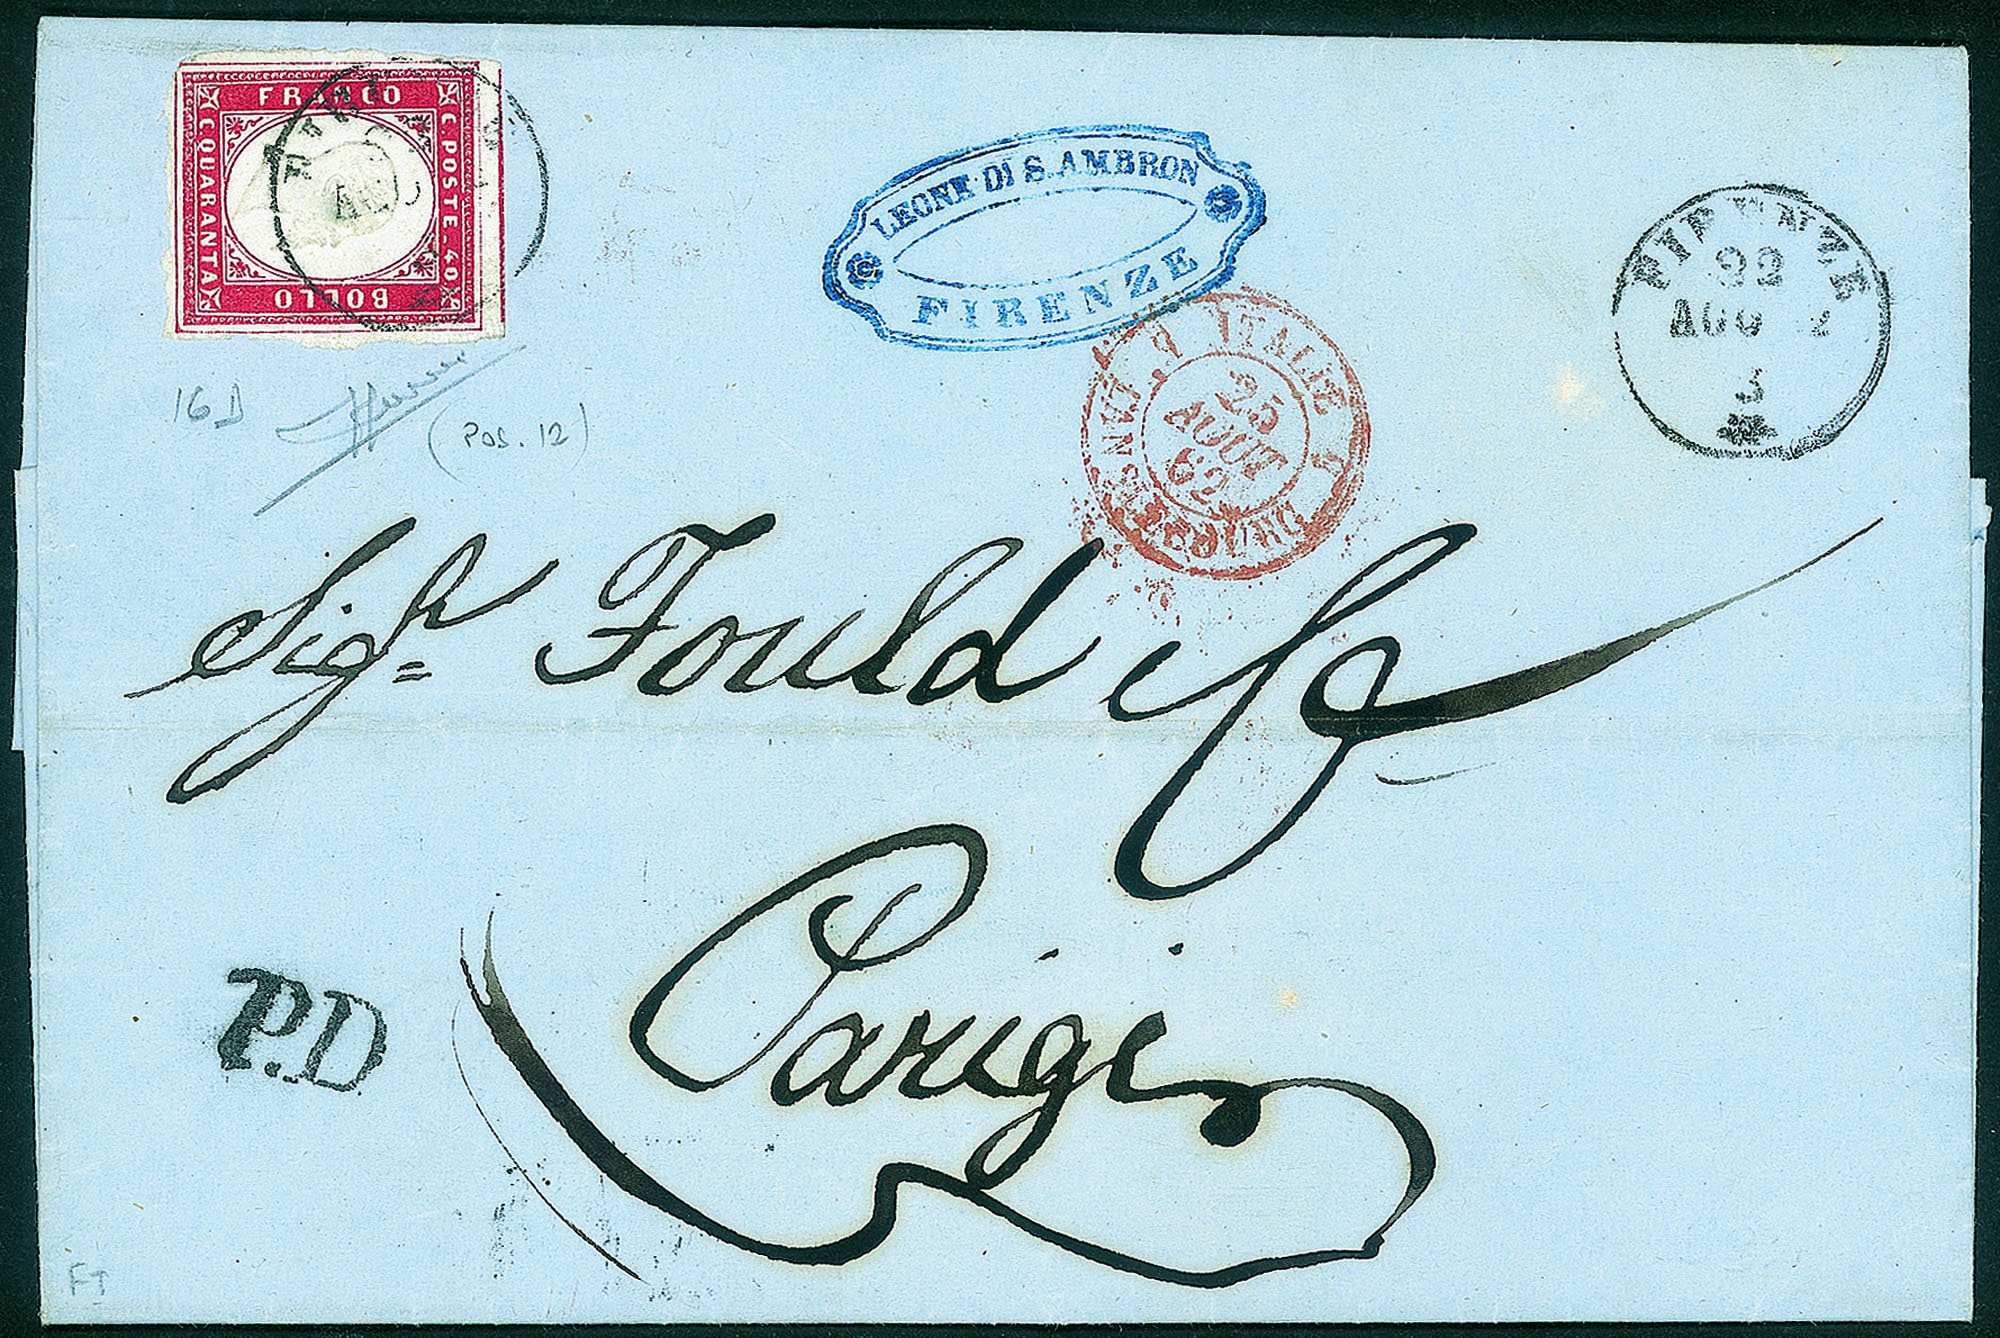 FRANCO
C. QUARANTA
C. POSTE. 40
BOLLO
LEONE DI S. AMBRON
FIRENZE
FIRENZE
22
AGO
3
ITALIE
25
AOUT
62
16D
(POS. 12)
Sigr Fould
Parigi
P.D
FT